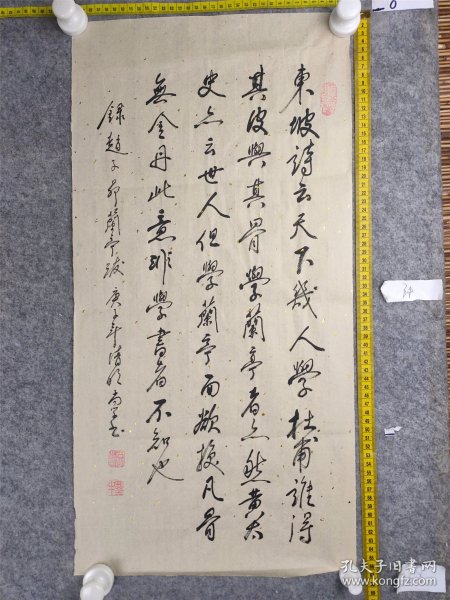 東坡詩云天下幾人學杜甫誰得
其皮與其骨學蘭亭者亦然黃太
史亦云世人但學蘭亭面欲換凡骨
無金丹此意非學書者不知也
錄趙子昂蘭亭跋 庚子年清明
孔夫子旧书网
www.kongfz.com